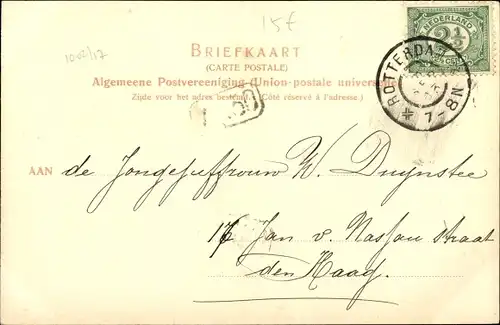 15f
1002/17
NEDERLAND
2½
CENT
BRIEFKAART
(CARTE POSTALE)
Algemeene Postvereeniging (Union-postale universelle)
Zijde voor het adres bestemd. (Côté réservé à l'adresse.)
ROTTERDAM
7-8N
AAN de Jongejuffrouw W. Duynstee
17 Jan v. Nassau straat
den Haag.